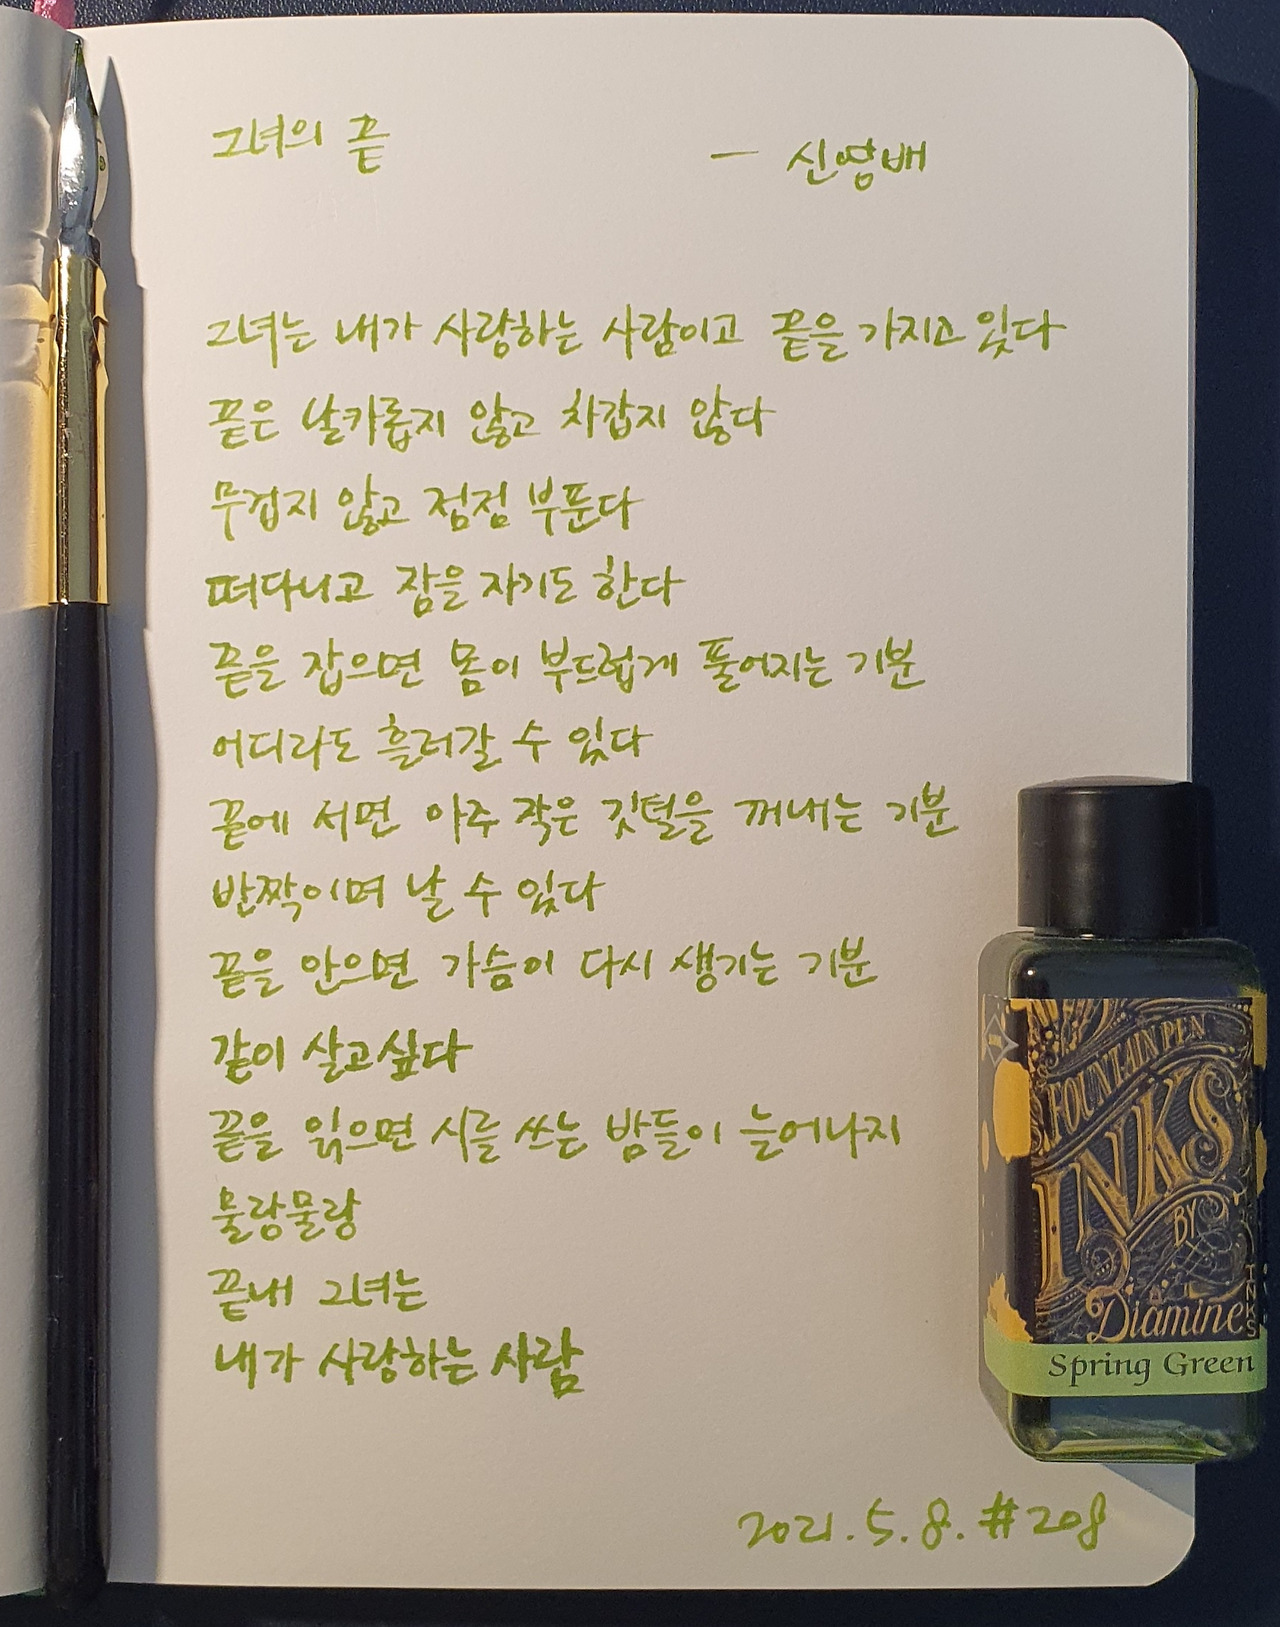 그녀의 끝
— 신영배
그녀는 내가 사랑하는 사람이고 끝을 가지고 있다
끝은 날카롭지 않고 차갑지 않다
무겁지 않고 점점 부푼다
떠다니고 잠을 자기도 한다
끝을 잡으면 몸이 부드럽게 풀어지는 기분
어디라도 흘러갈 수 있다
끝에 서면 아주 작은 깃털을 꺼내는 기분
반짝이며 날 수 있다
끝을 안으면 가슴이 다시 생기는 기분
같이 살고싶다
끝을 읽으면 시를 쓰는 밤들이 늘어나지
물랑물랑
끝내 그녀는
내가 사랑하는 사람
2021.5.8. #208
FOUNTAIN PEN
INKS
BY
Diamine
INKS
Spring Green